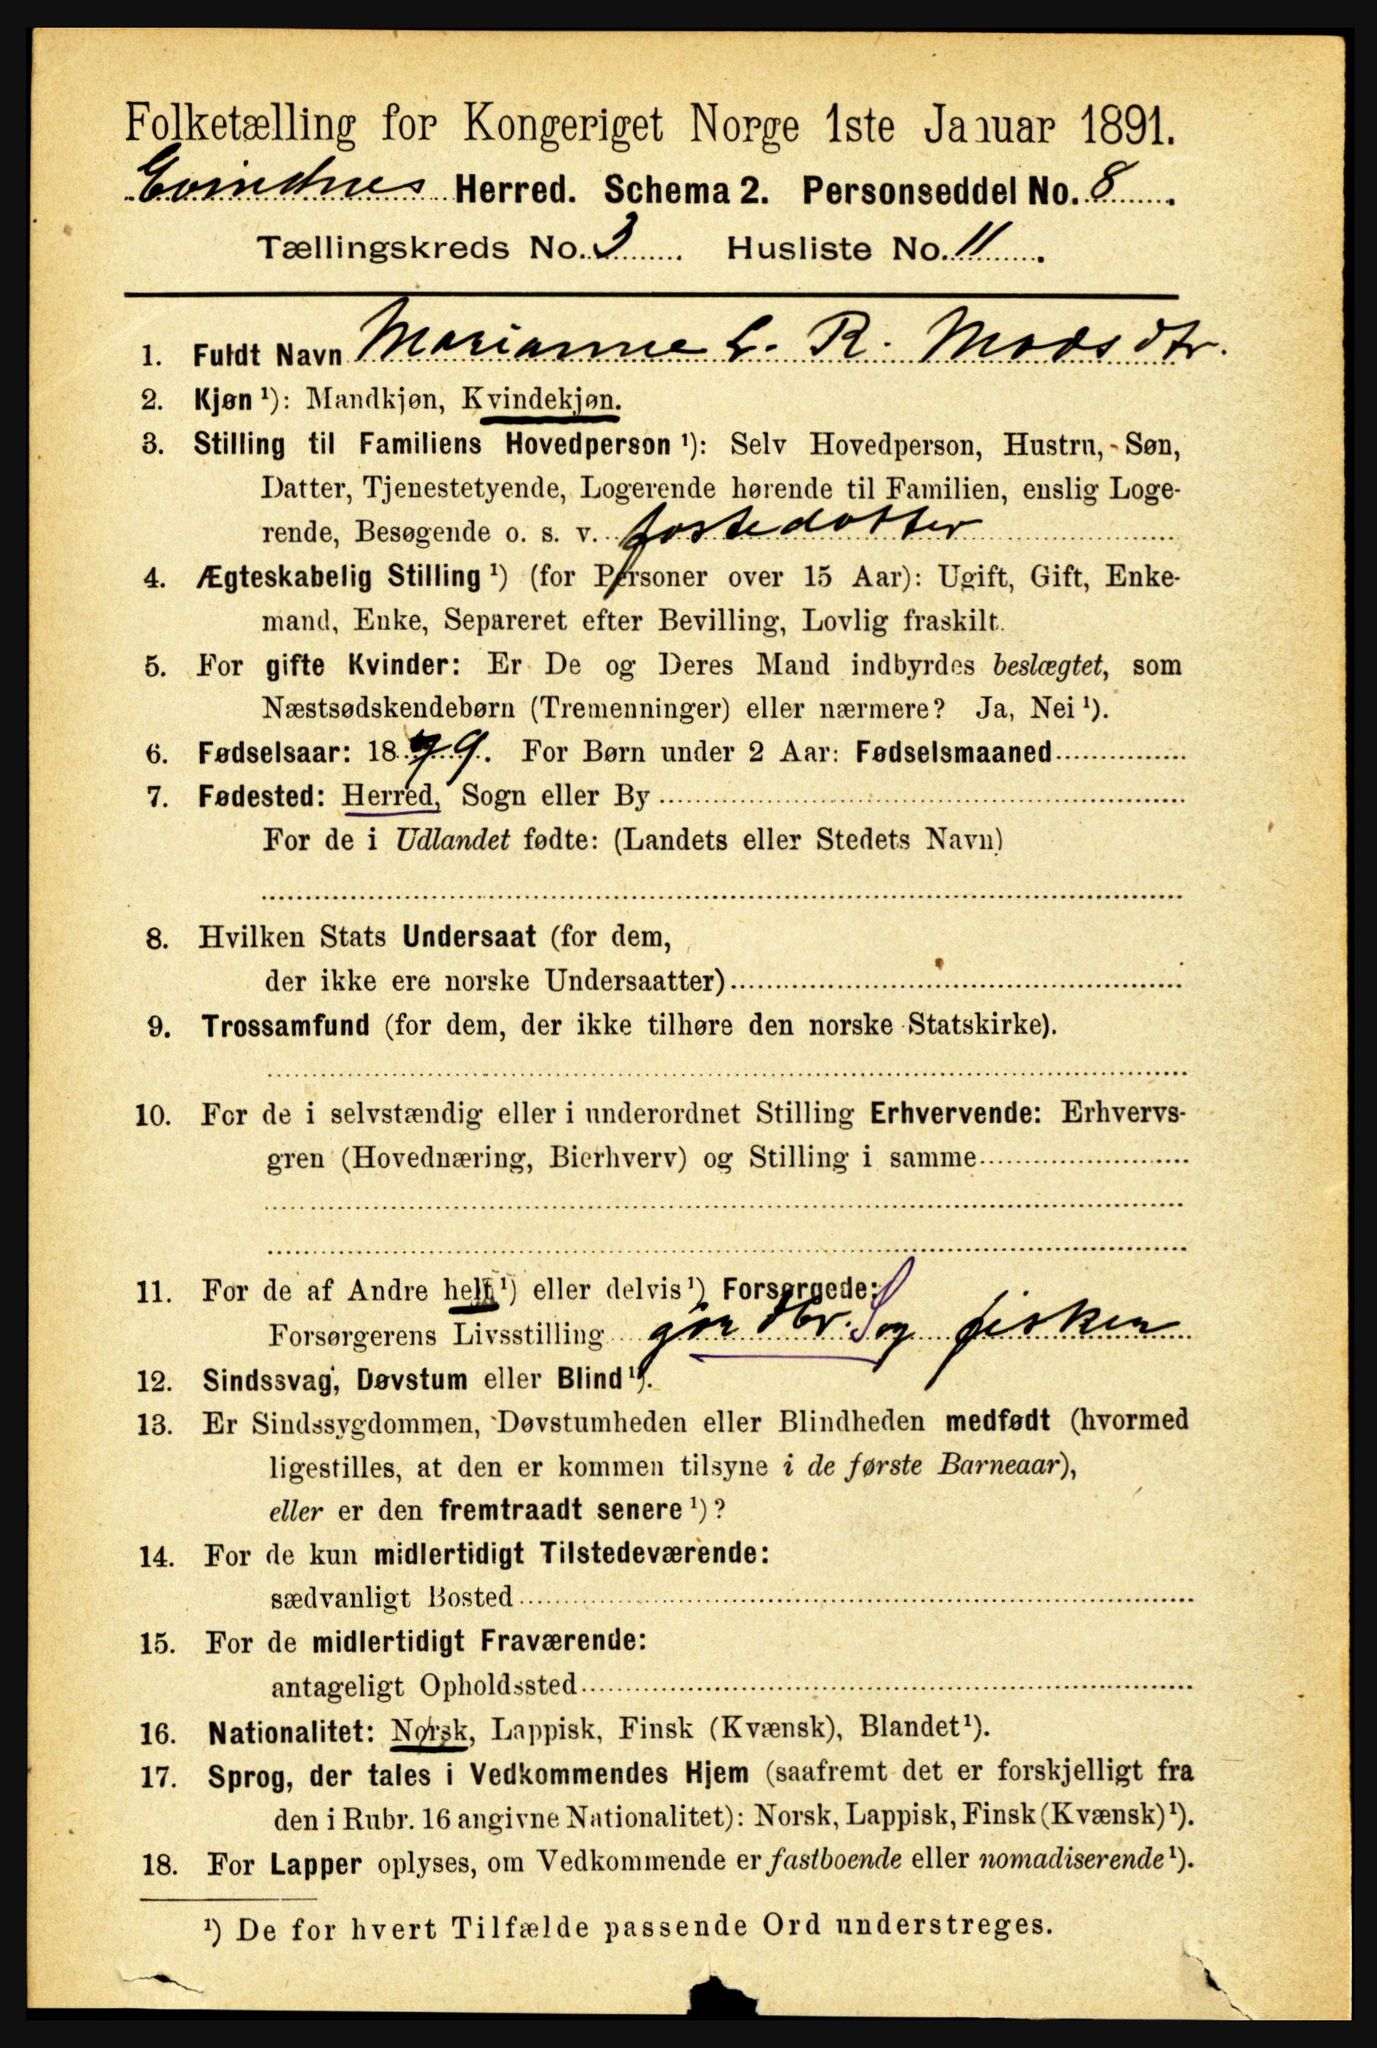 Folketælling for Kongeriget Norge 1ste Januar 1891.
Evindnes Herred. Schema 2. Personseddel No. 8
Tællingskreds No. 3 Husliste No. 11
1. Fuldt Navn Marianne L. R. Madsdtr.
2. Kjøn ¹): Mandkjøn, Kvindekjøn.
3. Stilling til Familiens Hovedperson ¹): Selv Hovedperson, Hustru, Søn,
Datter, Tjenestetyende, Logerende hørende til Familien, enslig Loge-
rende, Besøgende o. s. v. fostedatter
4. Ægteskabelig Stilling ¹) (for Personer over 15 Aar): Ugift, Gift, Enke-
mand, Enke, Separeret efter Bevilling, Lovlig fraskilt.
5. For gifte Kvinder: Er De og Deres Mand indbyrdes beslægtet, som
Næstsødskendebørn (Tremenninger) eller nærmere? Ja, Nei ¹).
6. Fødselsaar: 1879. For Børn under 2 Aar: Fødselsmaaned
7. Fødested: Herred, Sogn eller By
For de i Udlandet fødte: (Landets eller Stedets Navn)
8. Hvilken Stats Undersaat (for dem,
der ikke ere norske Undersaatter)
9. Trossamfund (for dem, der ikke tilhøre den norske Statskirke).
10. For de i selvstændig eller i underordnet Stilling Erhvervende: Erhvervs-
gren (Hovednæring, Bierhverv) og Stilling i samme
11. For de af Andre helt ¹) eller delvis ¹) Forsørgede:
Forsørgerens Livsstilling gaardbr. S og fisker
12. Sindssvag, Døvstum eller Blind ¹).
13. Er Sindssygdommen, Døvstumheden eller Blindheden medfødt (hvormed
ligestilles, at den er kommen tilsyne i de første Barneaar),
eller er den fremtraadt senere ¹)?
14. For de kun midlertidigt Tilstedeværende:
sædvanligt Bosted
15. For de midlertidigt Fraværende:
antageligt Opholdssted
16. Nationalitet: Norsk, Lappisk, Finsk (Kvænsk), Blandet ¹).
17. Sprog, der tales i Vedkommendes Hjem (saafremt det er forskjelligt fra
den i Rubr. 16 angivne Nationalitet): Norsk, Lappisk, Finsk (Kvænsk) ¹).
18. For Lapper oplyses, om Vedkommende er fastboende eller nomadiserende ¹).
¹) De for hvert Tilfælde passende Ord understreges.